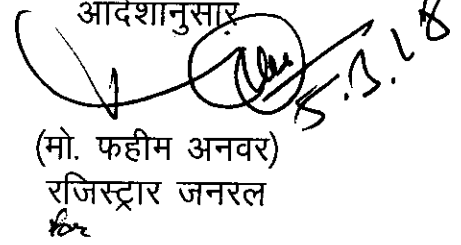 आदेशानुसार
5.3.18
(मो. फहीम अनवर)
रजिस्ट्रार जनरल
for